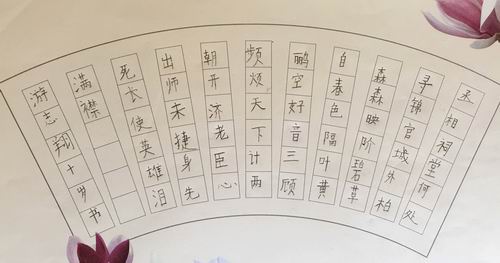 丞相祠堂何处
寻锦官城外柏
森森映阶碧草
自春色隔叶黄
鹂空好音三顾
频烦天下计两
朝开济老臣心
出师未捷身先
死长使英雄泪
满襟
游志翔十岁书